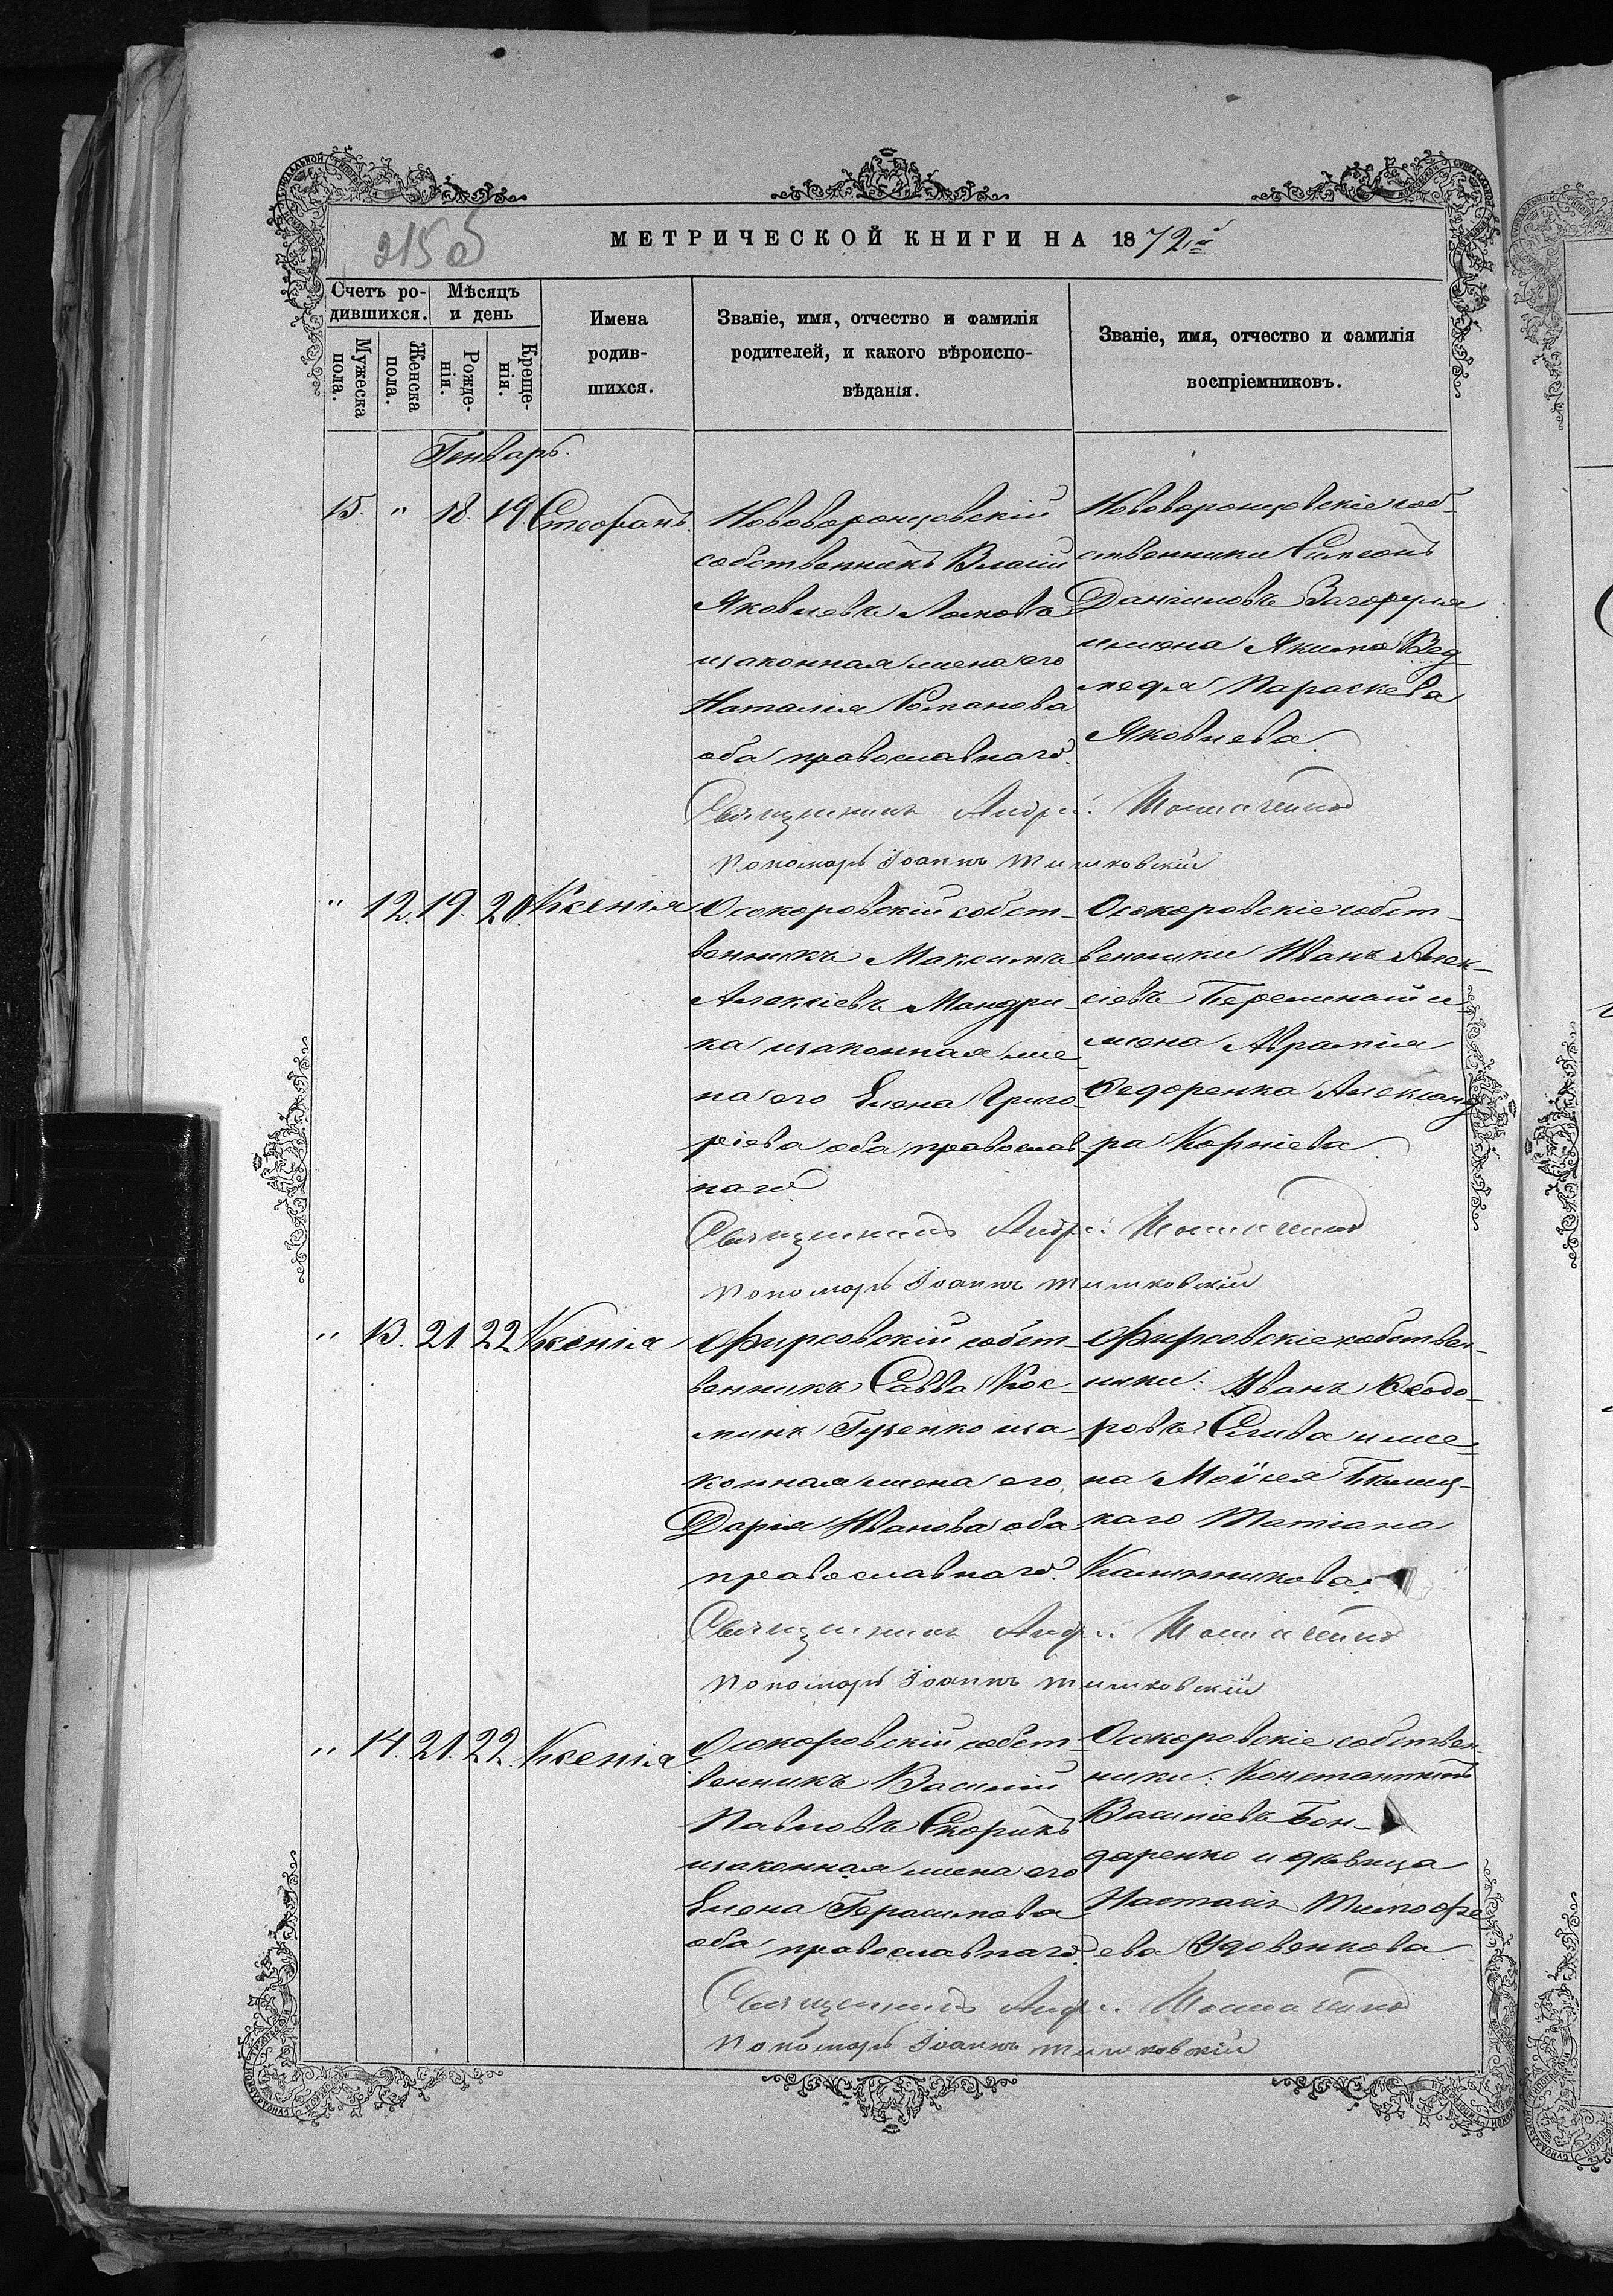 215 об
МЕТРИЧЕСКОЙ КНИГИ НА 1872й
Счетъ ро-
дившихся.
Мужеска
пола.
Женска
пола.
Мѣсяцъ
и день
Рожде-
нія.
Креще-
нія.
Имена
родив-
шихся.
Званіе, имя, отчество и фамилія
родителей, и какого вѣроиспо-
вѣданія.
Званіе, имя, отчество и фамилія
воспріемниковъ.
Генварь.
15. " 18. 19 Стефанъ.
Нововоронцовскій
собственникъ Власій
Яковлевъ
изаконная жена его
Наталія Романова
оба православнаго.
Нововоронцовскіе соб-
ственники Симеонъ
Даніиловъ Загоруля
ижена Якима Вед
медя Параскева
Яковлева.
Священникъ Андрей
Пономарь Іоаннъ Тишковскій
" 12. 19. 20. Ксенія
Осокоровскій собст-
венникъ Максимъ
Алексіевъ Мандри-
ка изаконная же-
на его Елена Григо-
ріева оба православ-
наго.
Осокоровскіе собст-
венники Иванъ Алек-
сіевъ и
жена Аврамія
Федоренка Александ
ра Корніева.
Священникъ Андрей
Пономарь Іоаннъ Тишковскій
" 13. 21. 22 Ксенія
Фирсовскій собст-
венникъ Савва Кос-
минъ Гузенко иза-
конная жена его
Дарія Иванова оба
православнаго.
Фирсовскіе собствен-
ники: Иванъ Феодо-
ровъ Слива и же-
на Моѵсея
каго Татіана
Калинникова.
Священникъ Андрей
Пономарь Іоаннъ Тишковскій
" 14. 21. 22. Ксенія
Осокоровскій собст-
венникъ Василій
Павловъ Скорикъ
изаконная жена его
Елена Герасимова
оба православнаго.
Осокоровскіе собствен-
ники: Константинъ
Василіевъ Бон-
даренко и дѣвица
Настасія Тимофе
ева Удовенкова.
Священникъ Андрей
Пономарь Іоаннъ Тишковскій